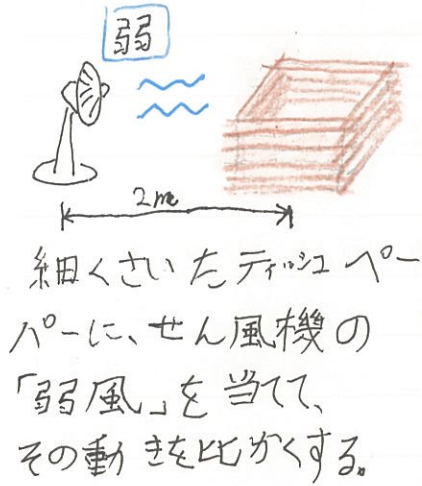 弱
2m
細くさいたティッシュペー
パーに、せん風機の
「弱風」を当てて、
その動きを比かくする。